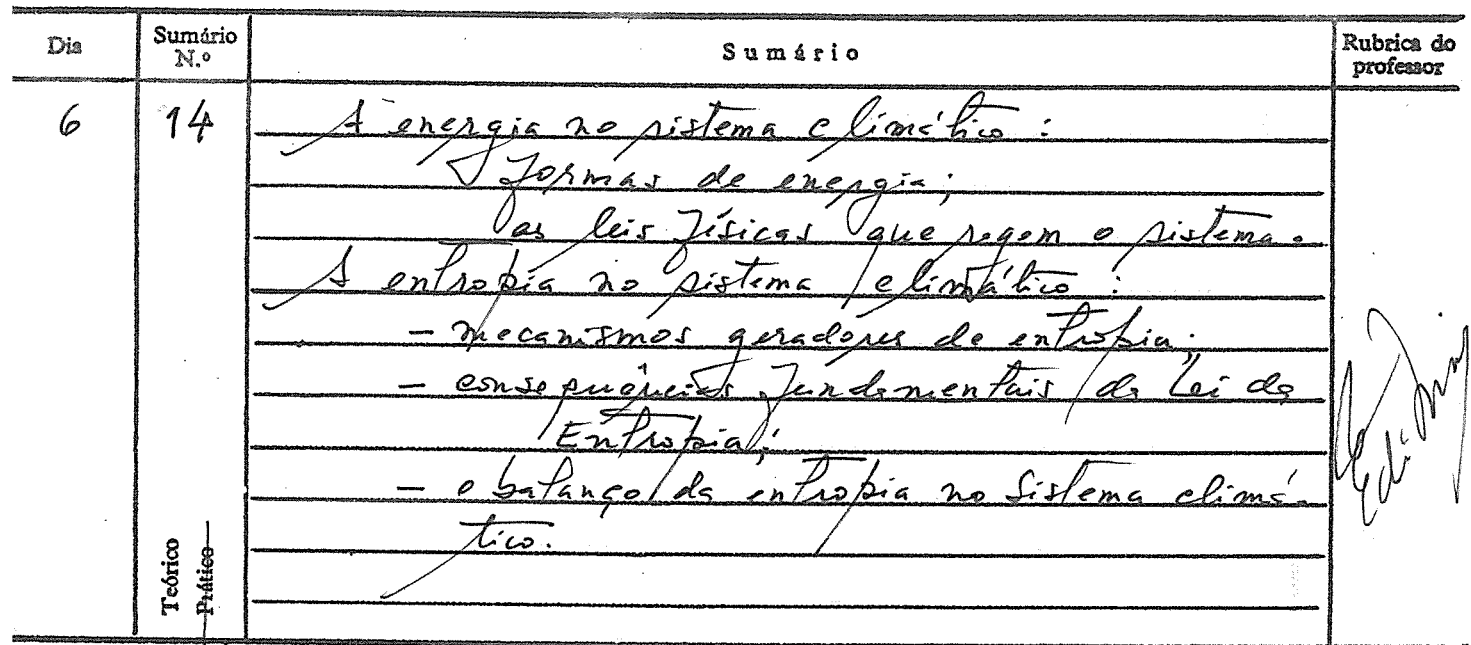 Dia Sumário N.º Sumário Rubrica do professor
6 14 A energia no sistema climático :
formas de energia;
as leis físicas que regem o sistema.
A entropia no sistema climático :
- mecanismos geradores de entropia;
- consequências fundamentais da Lei da
Entropia;
- o balanço da entropia no sistema climá-
tico.
Teórico
Prático